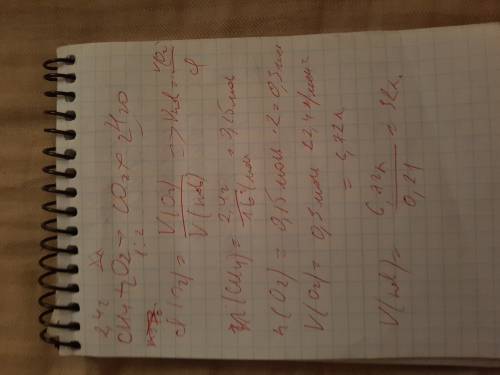 2,4г
CH4 + O2 → CO2 + 2H2O
1:2
φ(O2) = V(O2) / V(возд) => Vвозд = V(O2) / φ
n(CH4) = 2,4г / 16г/моль = 0,15моль
n(O2) = 0,15моль · 2 = 0,3моль
V(O2) = 0,3моль · 22,4л/моль
= 6,72л
V(возд) = 6,72л / 0,21 = 32л